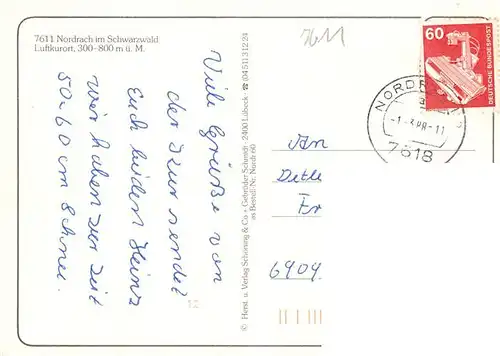 7611 Nordrach im Schwarzwald
Luftkurort, 300-800 m ü. M.
Viele Grüße von
der Kur sendet
Euch beiden Heinz
wir haben zur Zeit
50-60 cm Schnee.
© Herst. u. Verlag Schöning & Co. + Gebrüder Schmidt · 2400 Lübeck · ☎ (04 51) 3 12 24
Bestell-Nr. Nordr 60
7611
60
DEUTSCHE BUNDESPOST
NORDR
7618
An
Detle
Er
6909
12